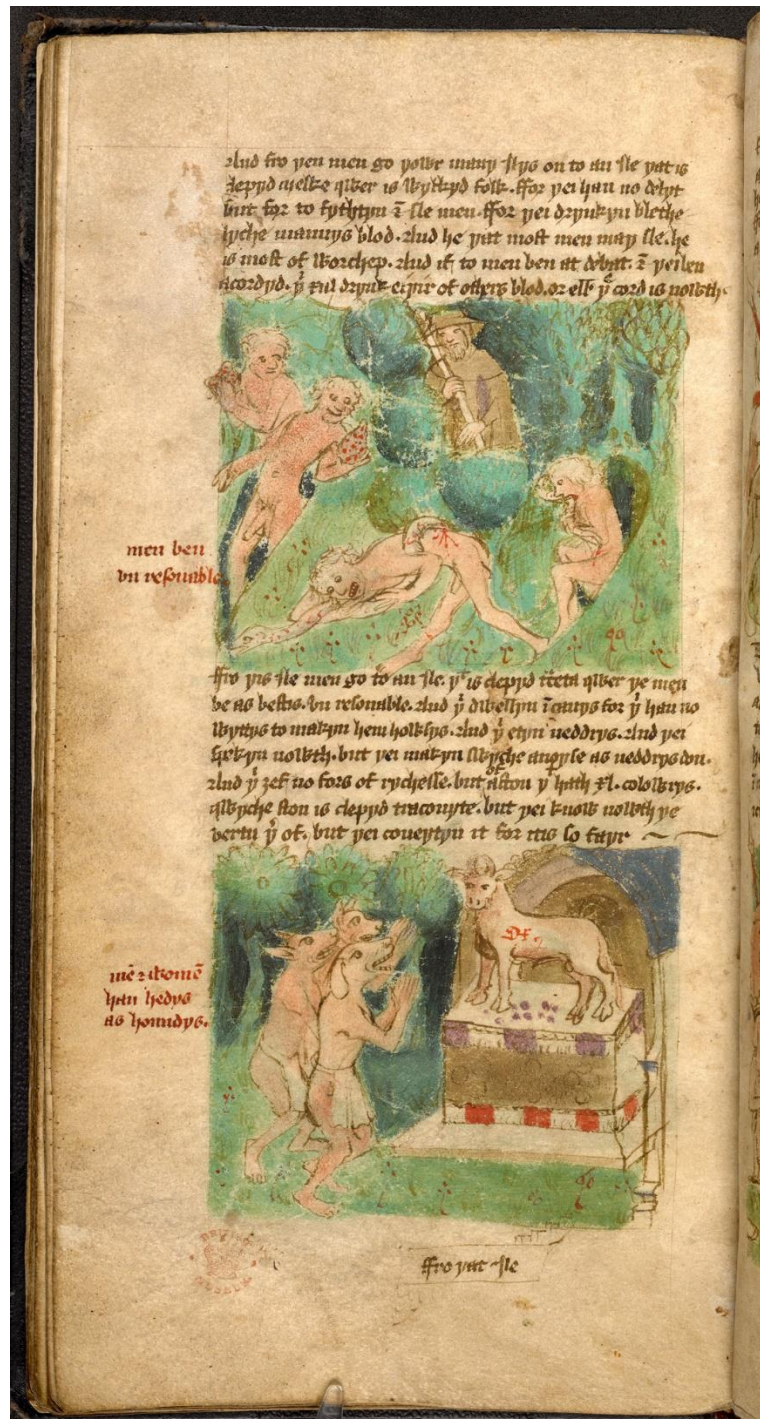 And fro yen men go yowr many Ilys on to an Ile yat is
clepyd melke qwer is wykkyd folk. ffor yei han no delyt
but for to fythtyn & sle men. ffor yei drynkyn blethe
lyche mannys blod. And he yat most men may sle. he
is most of worchep. And if to men ben at debat. & yei ben
acordyd. yͥ xul drynk eiyir of otherys blod. or ells yͤ cord is nowth.
men ben
vn resonable
ffro yis Ile men go to an Ile. yͭ is clepyd tceta qwer ye men
be as bestis. vn resonable. And yͥ dwellyn ī cauys for yͥ han no
wyttys to makyn hem howsys. And yͥ etyn neddrys. And yei
spekyn nowth. but yei makyn swyche a noyse as neddrys don.
And yͥ zef no fors of rychesse. but of a ston yͭ hath xl. colowrys.
qwyche ston is clepyd traconyte. but yei know nowth ye
vertu yͬ of. but yei coueytyn it for it is so fayr
mē & womē
han hedys
as houndys.
ffro yat Ile